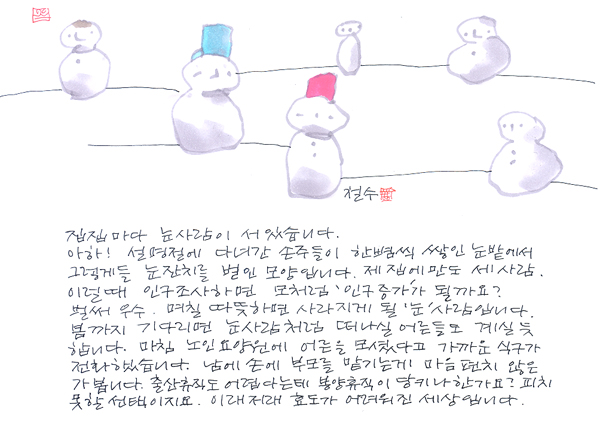 철수
집집마다 눈사람이 서 있습니다.
아하! 설명절에 다녀간 손주들이 한뼘씩 쌓인 눈밭에서
그렇게들 눈잔치를 벌인 모양입니다. 제 집에만도 세 사람.
이럴때 인구조사하면 모처럼 '인구증가'가 될까요?
벌써 우수. 며칠 따뜻하면 사라지게 될 '눈'사람입니다.
봄까지 기다리면 눈사람처럼 떠나실 어른들도 계실듯
합니다. 마침 노인요양원에 어른을 모셨다고 가까운 식구가
전화했습니다. 남에 손에 부모를 맡기는게 마음 편치 않은
가 봅니다. 출산휴직도 어렵다는데 봉양휴직이 당키나 한가요? 피치
못할 선택이지요. 이래저래 효도가 어려워진 세상입니다.